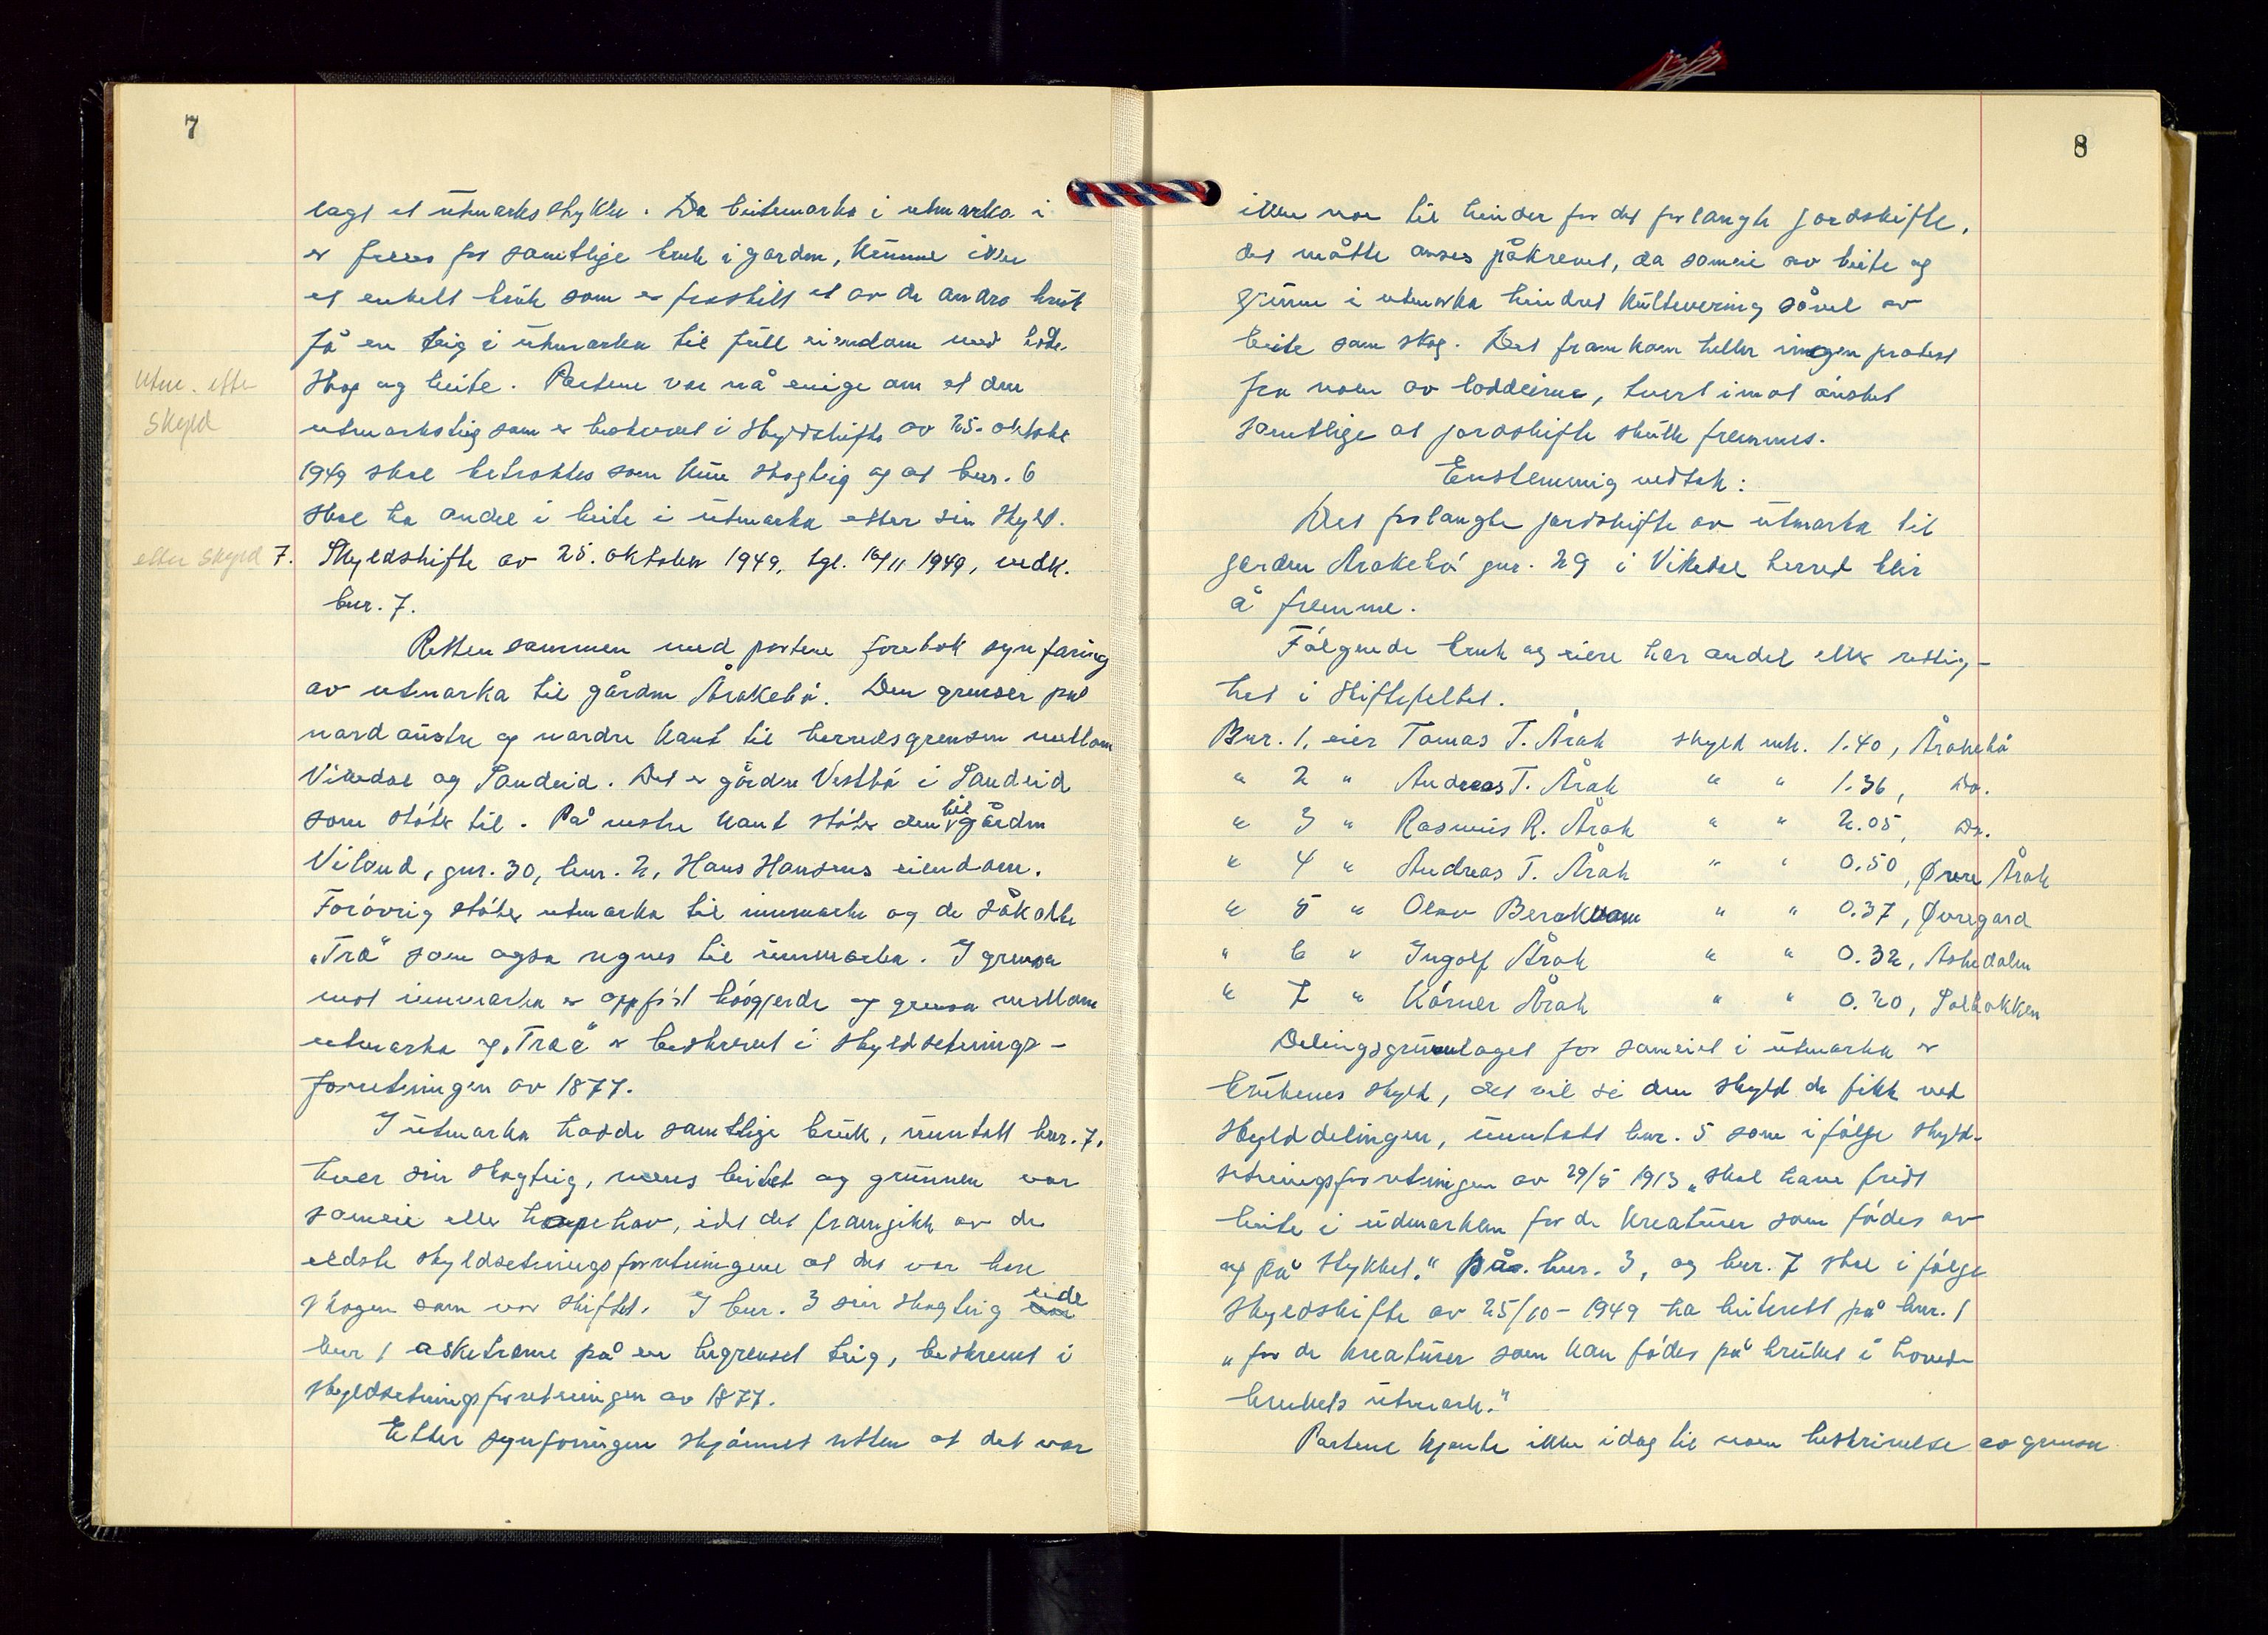 7
lagt et utmarksstykke. Da beitemarka i utmarka i
er felles for samtlige bruk i garden, kunne ikke
et enkelt bruk som er fraskilt et av de andre bruk
få en teig i utmarka til full eiendom med både
skog og beite. Partene var nå enige om at den
utmarksteig som er beskrevet i skyldskifte av 25. oktober
1949 skal betraktes som kun skogteig og at bnr. 6
skal ha andel i beite i utmarka etter sin skyld.
Utm. efter
skyld
efter skyld
7. Skyldskifte av 25. oktober 1949, tgl. 16/11 1949, vedk.
bnr. 7.
Retten sammen med partene foretok synfaring
av utmarka til gården Årakebø. Den grenser på
nordaustre og nordre kant til herredsgrensen mellom
Vikedal og Sandeid. Det er gården Vestbø i Sandeid
som støter til. På vestre kant støter den til gården
Viland, gnr. 30, bnr. 2, Hans Hansens eiendom.
Forøvrig støter utmarka til innmarka og de såkalte
"Tra" som også regnes til innmarka. I grensa
mot innmarka er oppført høggjerde og grensa mellom
utmarka og "Traa" er beskrevet i skyldsetnings-
forretningen av 1877.
I utmarka hadde samtlige bruk, unntatt bnr. 7,
hver sin skogteig, mens beitet og grunnen var
sameie eller hopehav, idet det framgikk av de
eldste skyldsetningsforretningene at det var bare
skogen som var skiftet. I bnr. 3 sin skogteig var eide
bnr 1 asketrærne på en begrenset teig, beskrevet i
skyldsetningsforretningen av 1877.
Etter synfaringen skjønnet retten at det var
8
ikke noe til hinder for det forlangte jordskifte,
det måtte anses påkrevet, da sameie av beite og
grunn i utmarka hindret kultivering såvel av
beite som skog. Det framkom heller ingen protest
fra noen av loddeierne, tvert imot ønsket
samtlige at jordskifte skulle fremmes.
Enstemmig vedtak:
Det forlangte jordskifte av utmarka til
garden Årakebø gnr. 29 i Vikedal herred blir
å fremme.
Følgende bruk og eiere har andel eller rettig-
het i skiftefeltet.
Bnr. 1, eier Tomas T. Årak skyld mk. 1.40, Årakebø
" 2 " Andreas T. Årak " " 1.36, Do.
" 3 " Rasmus R. Årak " " 2.05, Do.
" 4 " Andreas T. Årak " " 0.50, Øvre Årak
" 5 " Olav Berakvam " " 0.37, Øvregard
" 6 " Ingolf Årak " " 0.32, Askedalen
" 7 " Kørner Årak " " 0.20, Solbakken
Delingsgrunnlaget for sameiet i utmarka er
brukenes skyld, det vil si den skyld de fikk ved
skylddelingen, unntatt bnr. 5 som ifølge skyld-
setningsforretningen av 29/5 1913 "skal have fridt
beite i udmarken for de kreaturer som fødes av
og på stykket." på bnr. 3, og bnr. 7 skal i følge
skyldskifte av 25/10 - 1949 ha beiterett på bnr. 1
"for de kreaturer som kan fødes på bruket i hoved-
brukets utmark."
Partene kjente ikke idag til noen beskrivelse av grensen